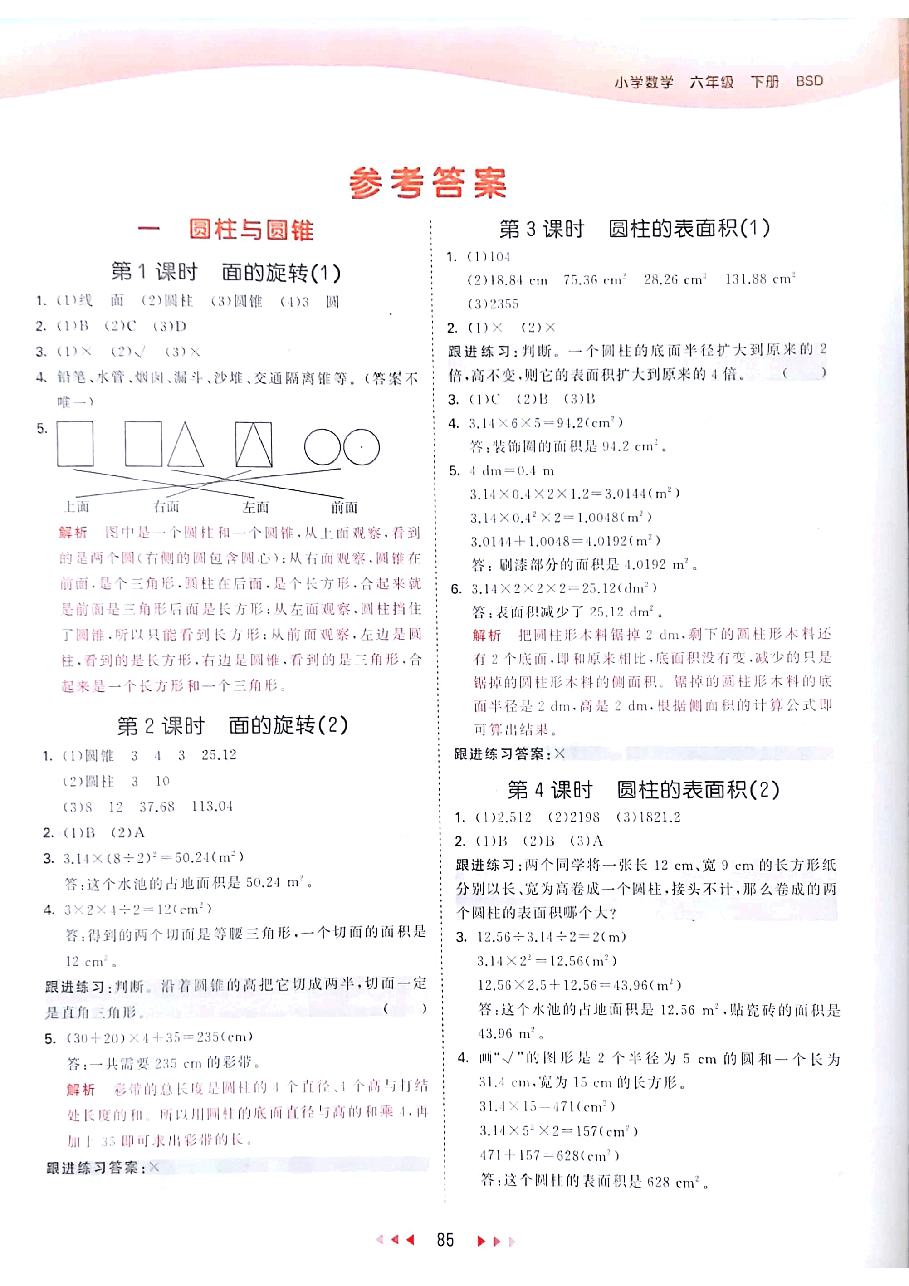 小学数学 六年级 下册 BSD
参考答案
一 圆柱与圆锥
第1课时 面的旋转(1)
1. (1)线 面 (2)圆柱 (3)圆锥 (4)3 圆
2. (1)B (2)C (3)D
3. (1)× (2)√ (3)×
4. 铅笔、水管、烟囱、漏斗、沙堆、交通隔离锥等。(答案不
唯一)
5.
上面 右面 左面 前面
解析 图中是一个圆柱和一个圆锥,从上面观察,看到
的是两个圆(右侧的圆包含圆心);从右面观察,圆锥在
前面,是个三角形,圆柱在后面,是个长方形,合起来就
是前面是三角形后面是长方形;从左面观察,圆柱挡住
了圆锥,所以只能看到长方形;从前面观察,左边是圆
柱,看到的是长方形,右边是圆锥,看到的是三角形,合
起来是一个长方形和一个三角形。
第2课时 面的旋转(2)
1. (1)圆锥 3 4 3 25.12
(2)圆柱 3 10
(3)8 12 37.68 113.04
2. (1)B (2)A
3. 3.14×(8÷2)²=50.24(m²)
答:这个水池的占地面积是 50.24 m²。
4. 3×2×4÷2=12(cm²)
答:得到的两个切面是等腰三角形,一个切面的面积是
12 cm²。
跟进练习:判断。沿着圆锥的高把它切成两半,切面一定
是直角三角形。 ( )
5. (30+20)×4+35=235(cm)
答:一共需要 235 cm 的彩带。
解析 彩带的总长度是圆柱的4个直径、4个高与打结
处长度的和。所以用圆柱的底面直径与高的和乘4,再
加上35即可求出彩带的长。
跟进练习答案:×
第3课时 圆柱的表面积(1)
1. (1)104
(2)18.84 cm 75.36 cm² 28.26 cm² 131.88 cm²
(3)2355
2. (1)× (2)×
跟进练习:判断。一个圆柱的底面半径扩大到原来的2
倍,高不变,则它的表面积扩大到原来的4倍。 ( )
3. (1)C (2)B (3)B
4. 3.14×6×5=94.2(cm²)
答:装饰圆的面积是 94.2 cm²。
5. 4 dm=0.4 m
3.14×0.4×2×1.2=3.0144(m²)
3.14×0.4²×2=1.0048(m²)
3.0144+1.0048=4.0192(m²)
答: 刷漆部分的面积是 4.0192 m²。
6. 3.14×2×2×2=25.12(dm²)
答:表面积减少了 25.12 dm²。
解析 把圆柱形木料锯掉 2 dm,剩下的圆柱形木料还
有2个底面,即和原来相比,底面积没有变,减少的只是
锯掉的圆柱形木料的侧面积。锯掉的圆柱形木料的底
面半径是 2 dm,高是 2 dm,根据侧面积的计算公式即
可算出结果。
跟进练习答案:×
第4课时 圆柱的表面积(2)
1. (1)2.512 (2)2198 (3)1821.2
2. (1)B (2)B (3)A
跟进练习:两个同学将一张长 12 cm、宽 9 cm 的长方形纸
分别以长、宽为高卷成一个圆柱,接头不计,那么卷成的两
个圆柱的表面积哪个大?
3. 12.56÷3.14÷2=2(m)
3.14×2²=12.56(m²)
12.56×2.5+12.56=43.96(m²)
答:这个水池的占地面积是 12.56 m²,贴瓷砖的面积是
43.96 m²。
4. 画“√”的图形是 2 个半径为 5 cm 的圆和一个长为
31.4 cm,宽为 15 cm 的长方形。
31.4×15=471(cm²)
3.14×5²×2=157(cm²)
471+157=628(cm²)
答:这个圆柱的表面积是 628 cm²。
85